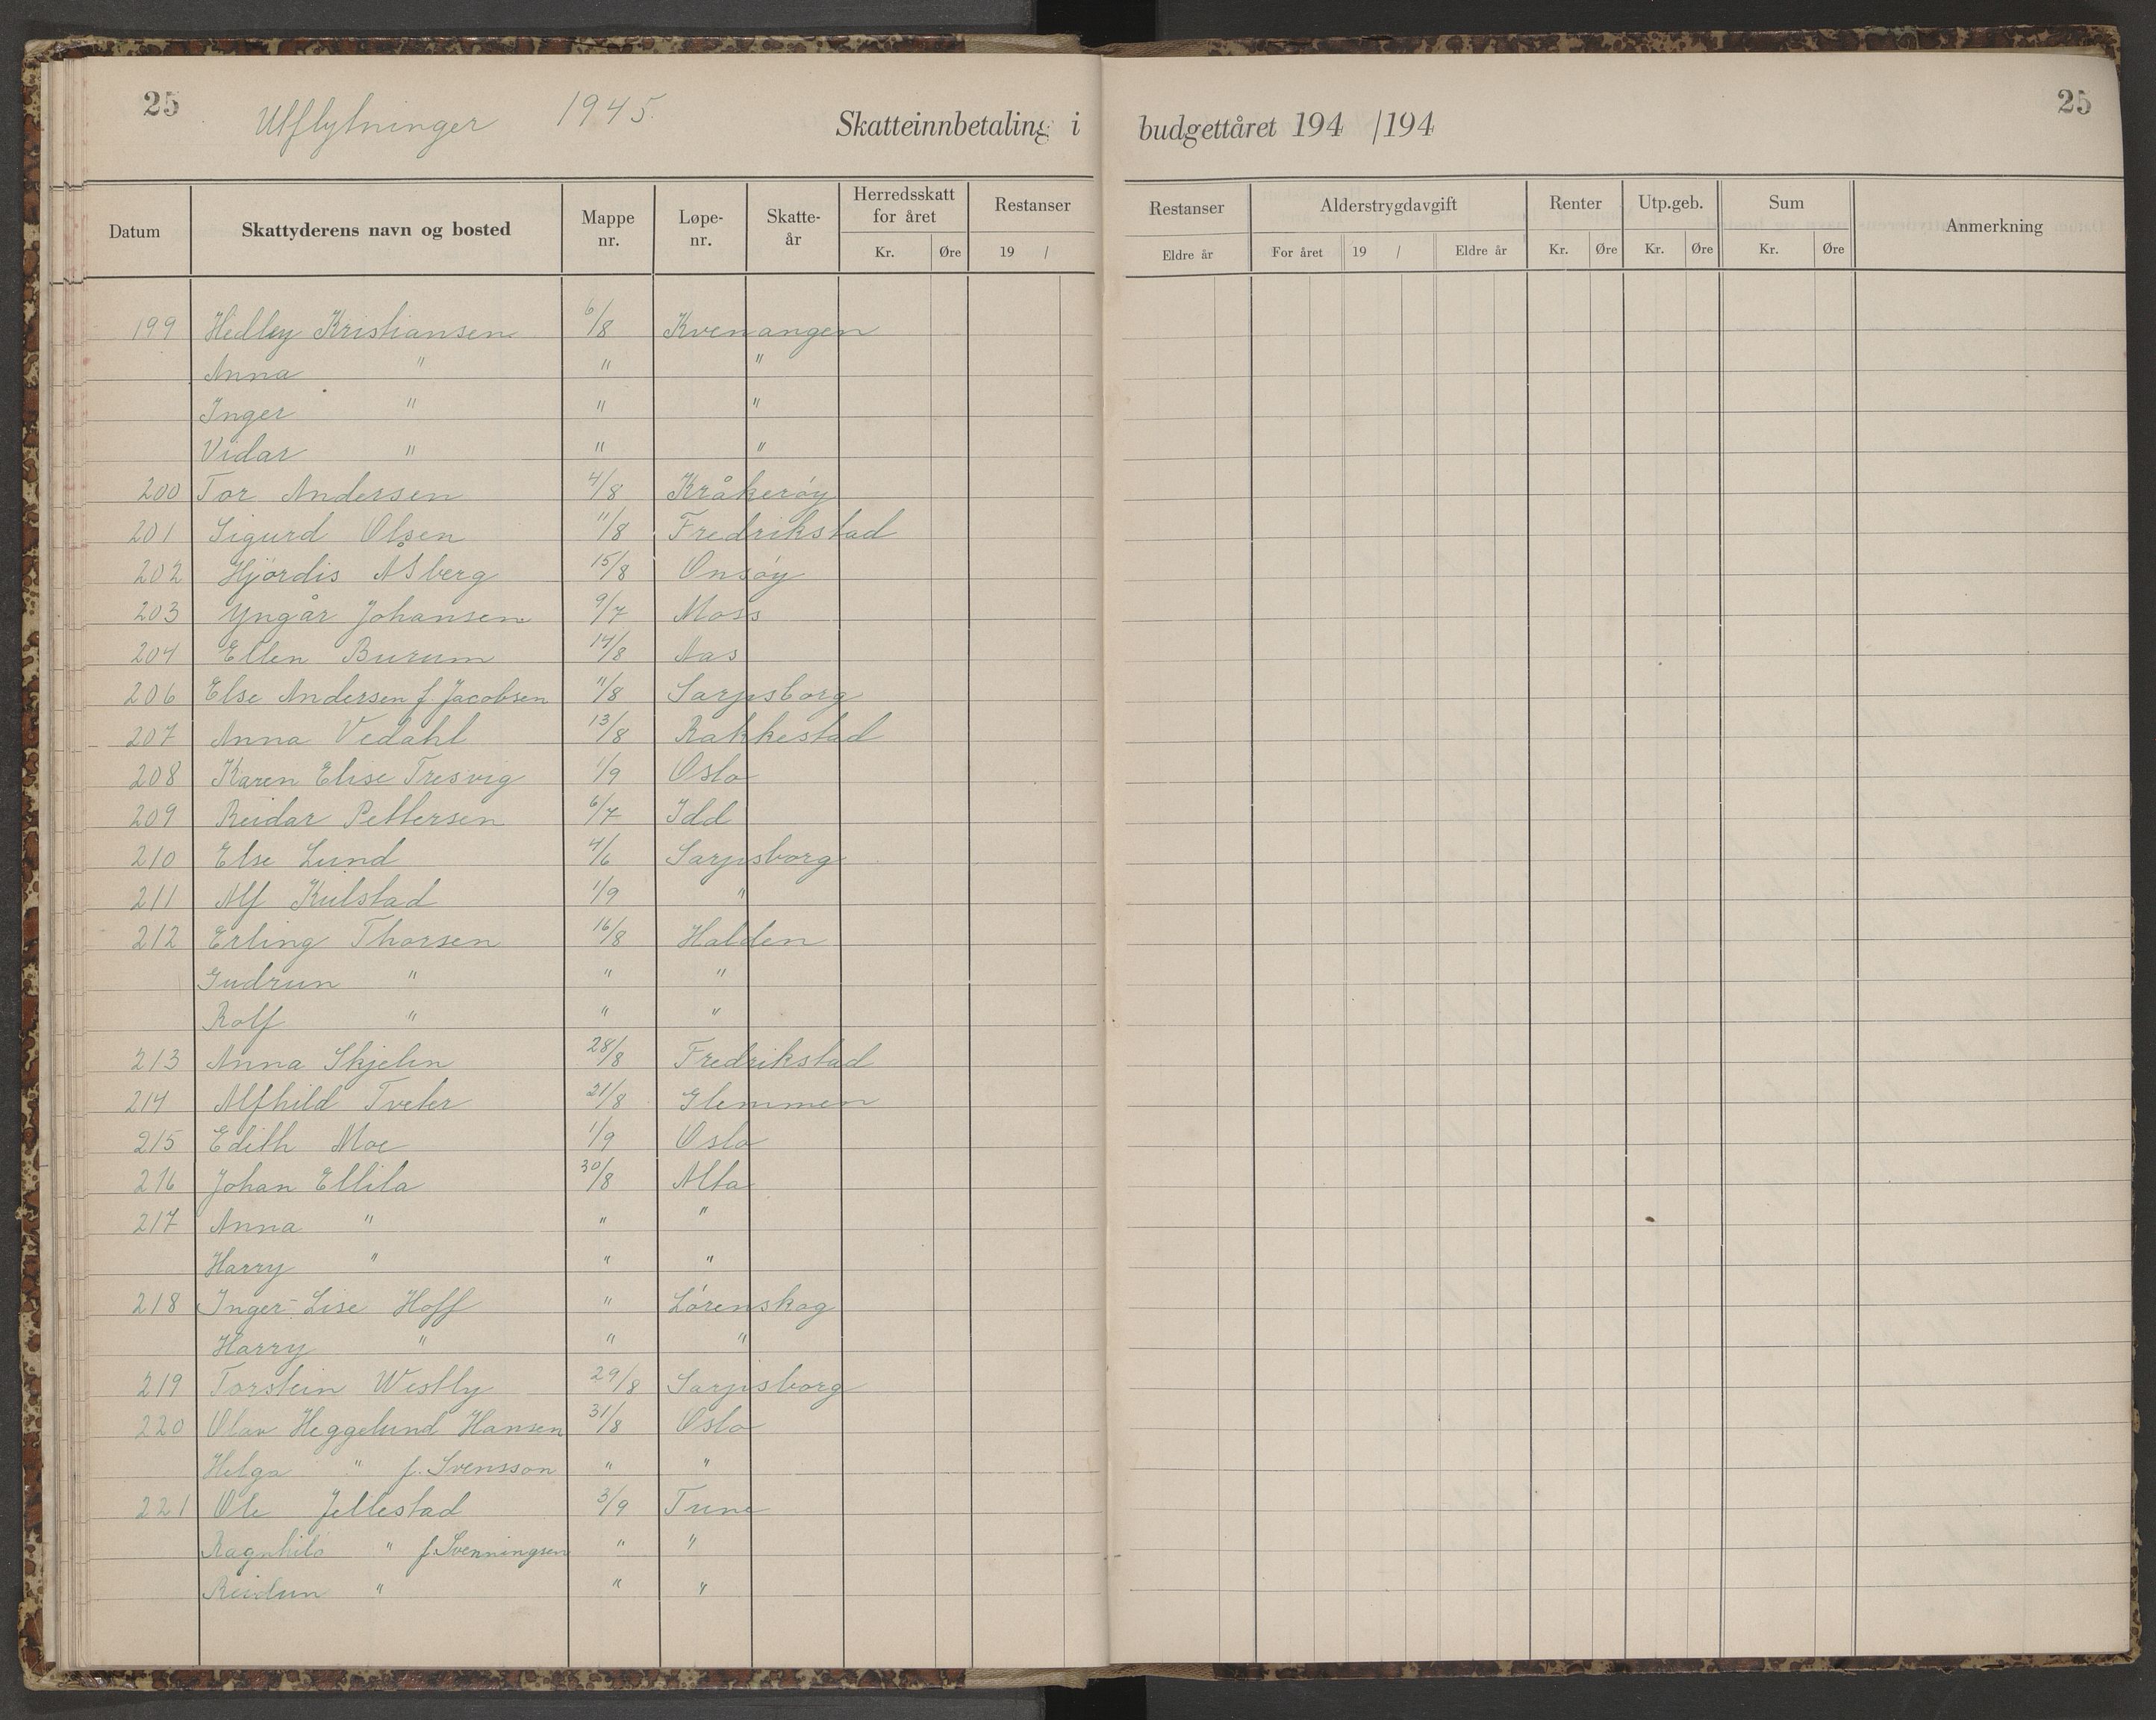 25 Utflytninger 1945. Skatteinnbetaling i budgettåret 194 /194 25
Datum Skattyderens navn og bosted Mappe nr. Løpe- nr. Skatte- år Herredsskatt for året Kr. Øre Restanser 19 / Restanser Eldre år Alderstrygdavgift For året 19 / Eldre år Renter Kr. Øre Utp.geb. Kr. Øre Sum Kr. Øre Anmerkning
199 Hedley Kristiansen 6/8 Kvenangen
Anna " " "
Inger " " "
Vidar " " "
200 Tor Andersen 4/8 Kråkerøy
201 Sigurd Olsen 11/8 Fredrikstad
202 Hjördis Åsberg 15/8 Onsøy
203 Yngår Johansen 9/7 Moss
204 Ellen Burum 14/8 Aas
206 Else Andersen f Jacobsen 11/8 Sarpsborg
207 Anna Vedahl 13/8 Rakkestad
208 Karen Elise Tresvig 1/9 Oslo
209 Reidar Pettersen 6/7 Idd
210 Else Lund 4/6 Sarpsborg
211 Alf Kulstad 1/9 "
212 Erling Thorsen 16/8 Halden
Gudrun " " "
Rolf " " "
213 Anna Skjelin 28/8 Fredrikstad
214 Alfhild Tveter 21/8 Glemmen
215 Edith Moe 1/9 Oslo
216 Johan Ellila 30/8 Alta
217 Anna " " "
Harry " " "
218 Inger-Lise Hoff " Lørenskog
Harry " " "
219 Torstein Westly 29/8 Sarpsborg
220 Olav Heggelund Hansen 31/8 Oslo
Helga " f. Svensson " "
221 Ole Jellestad 3/9 Tune
Ragnhild " f. Svenningsen " "
Reidun " " "